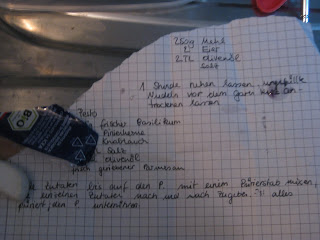 250g Mehl
2 Eier
2 TL Olivenöl
Salz
1 Stunde ruhen lassen,
Nudeln vor dem Garen kurz an-
trocknen lassen
Pesto
frischer Basilikum
Pinienkerne
Knoblauch
Salz
Olivenöl
frisch geriebener Parmesan
Zutaten bis auf den P. mit einem Pürierstab mixen,
einzelnen Zutaten nach und nach zugeben. alles
püriert, den P. unterrühren.
BIO